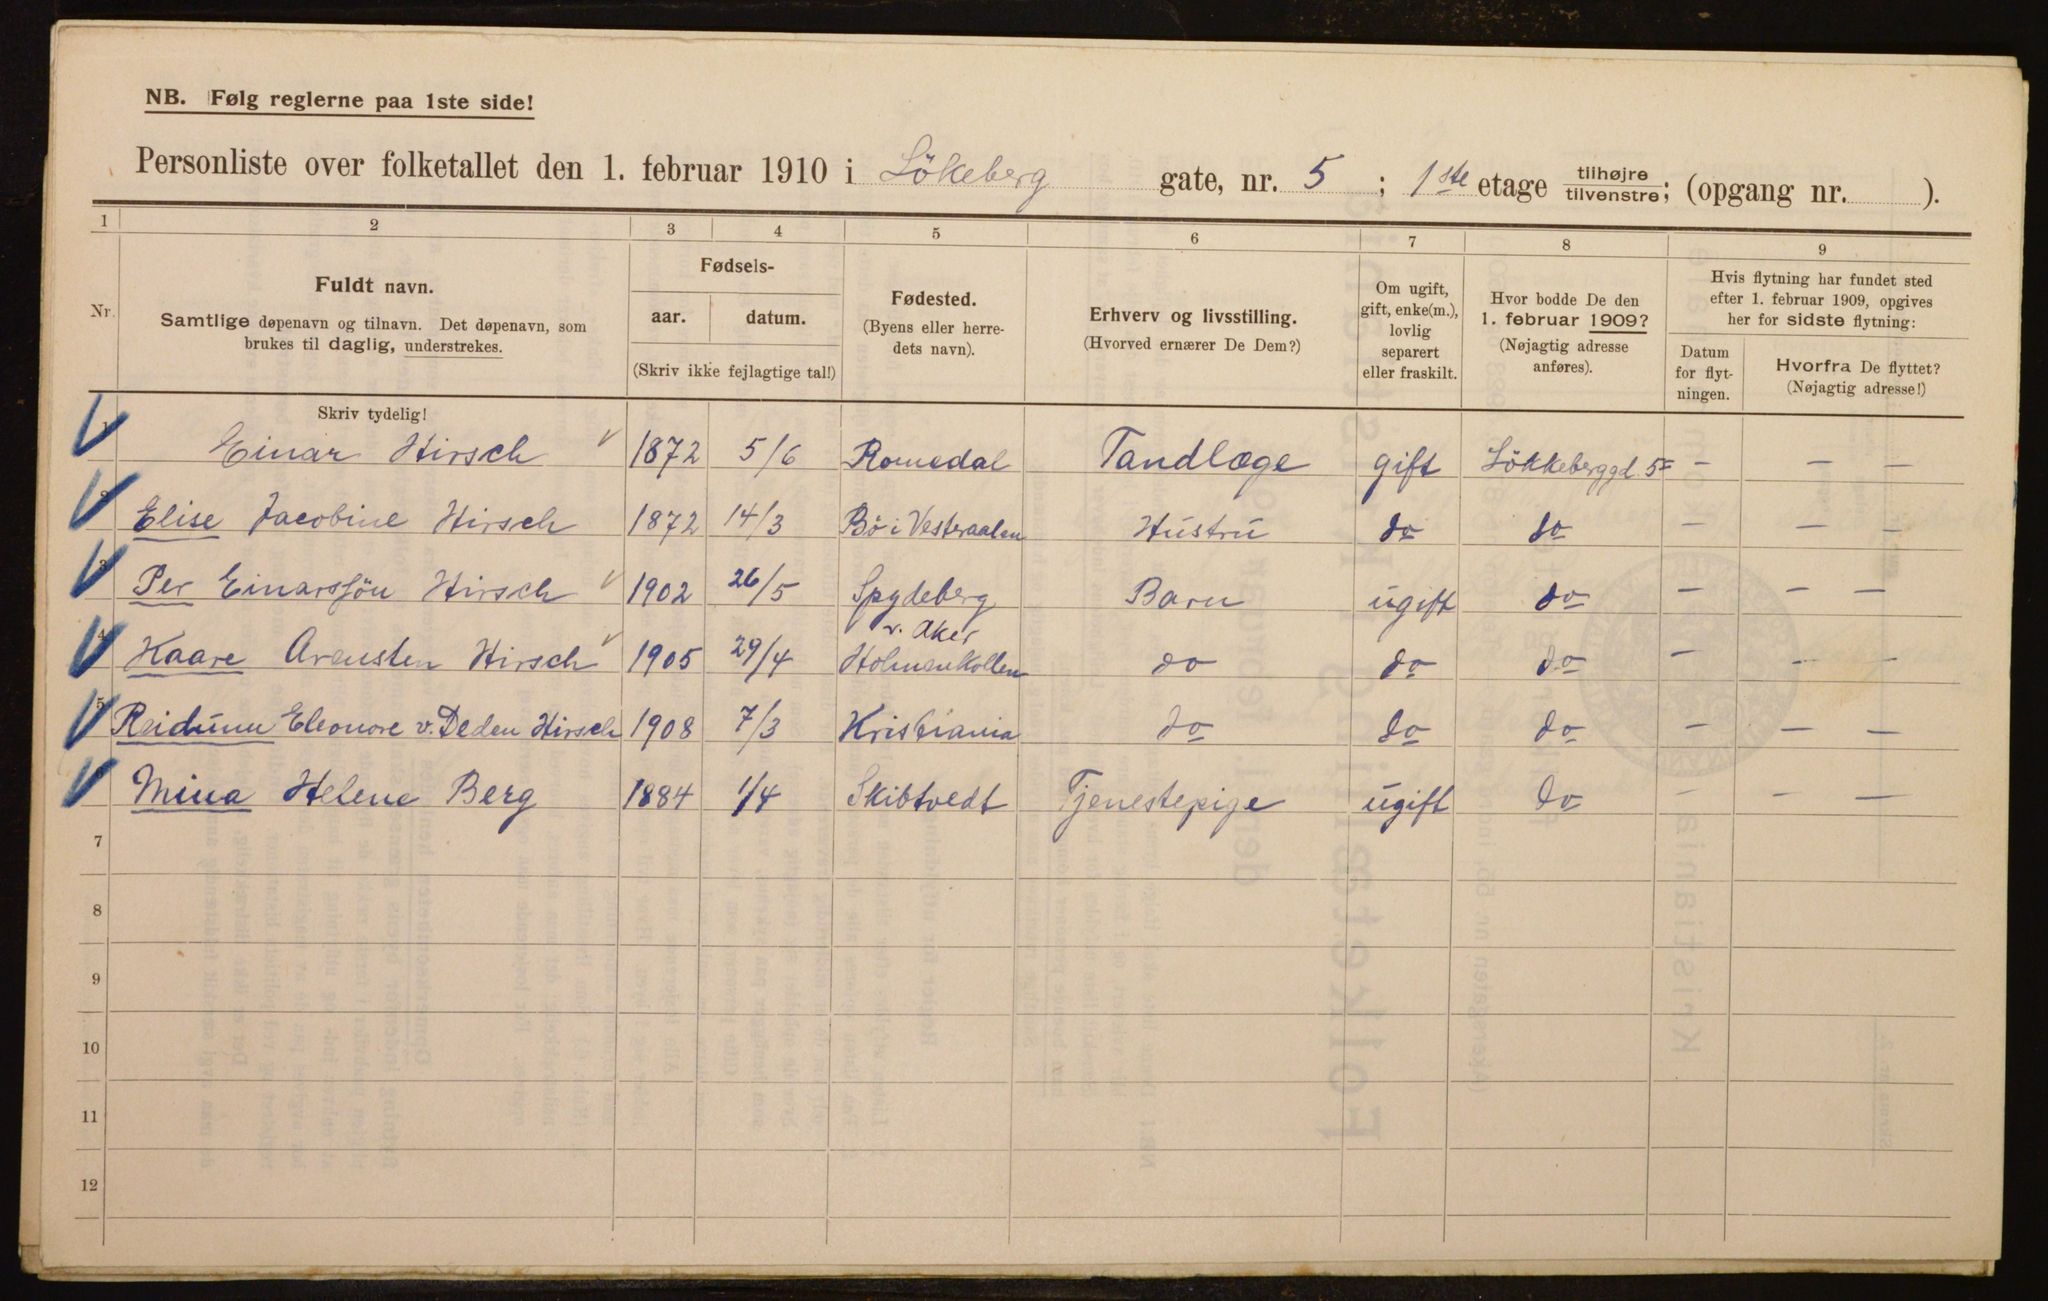 NB. Følg reglerne paa 1ste side!
Personliste over folketallet den 1. februar 1910 i Lökeberg gate, nr. 5 ; 1ste etage tilhøjre / tilvenstre; (opgang nr. ).
1 2 3 4 5 6 7 8 9
Nr.
Fuldt navn.
Samtlige døpenavn og tilnavn. Det døpenavn, som
brukes til daglig, understrekes.
Skriv tydelig!
Fødsels-
aar. datum.
(Skriv ikke fejlagtige tal!)
Fødested.
(Byens eller herre-
dets navn).
Erhverv og livsstilling.
(Hvorved ernærer De Dem?)
Om ugift,
gift, enke(m.),
lovlig
separert
eller fraskilt.
Hvor bodde De den
1. februar 1909?
(Nøjagtig adresse
anføres).
Hvis flytning har fundet sted
efter 1. februar 1909, opgives
her for sidste flytning:
Datum
for flyt-
ningen.
Hvorfra De flyttet?
(Nøjagtig adresse!)
1 Einar Hirsch 1872 5/6 Romedal Tandlæge gift Lökkeberggd. 5 – — —
2 Elise Jacobine Hirsch 1872 14/3 Bö i Vesteraalen Hustru do do – — —
3 Per Einarssön Hirsch 1902 26/5 Spydeberg Barn ugift do – — —
4 Kaare Arensten Hirsch 1905 29/4 v. Aker
Holmenkollen do do do – — —
5 Reidunn Eleonore v. Deden Hirsch 1908 7/3 Kristiania do do do – — —
6 Mina Helene Berg 1884 1/4 Skibtvedt Tjenestepige ugift do – — —
7
8
9
10
11
12